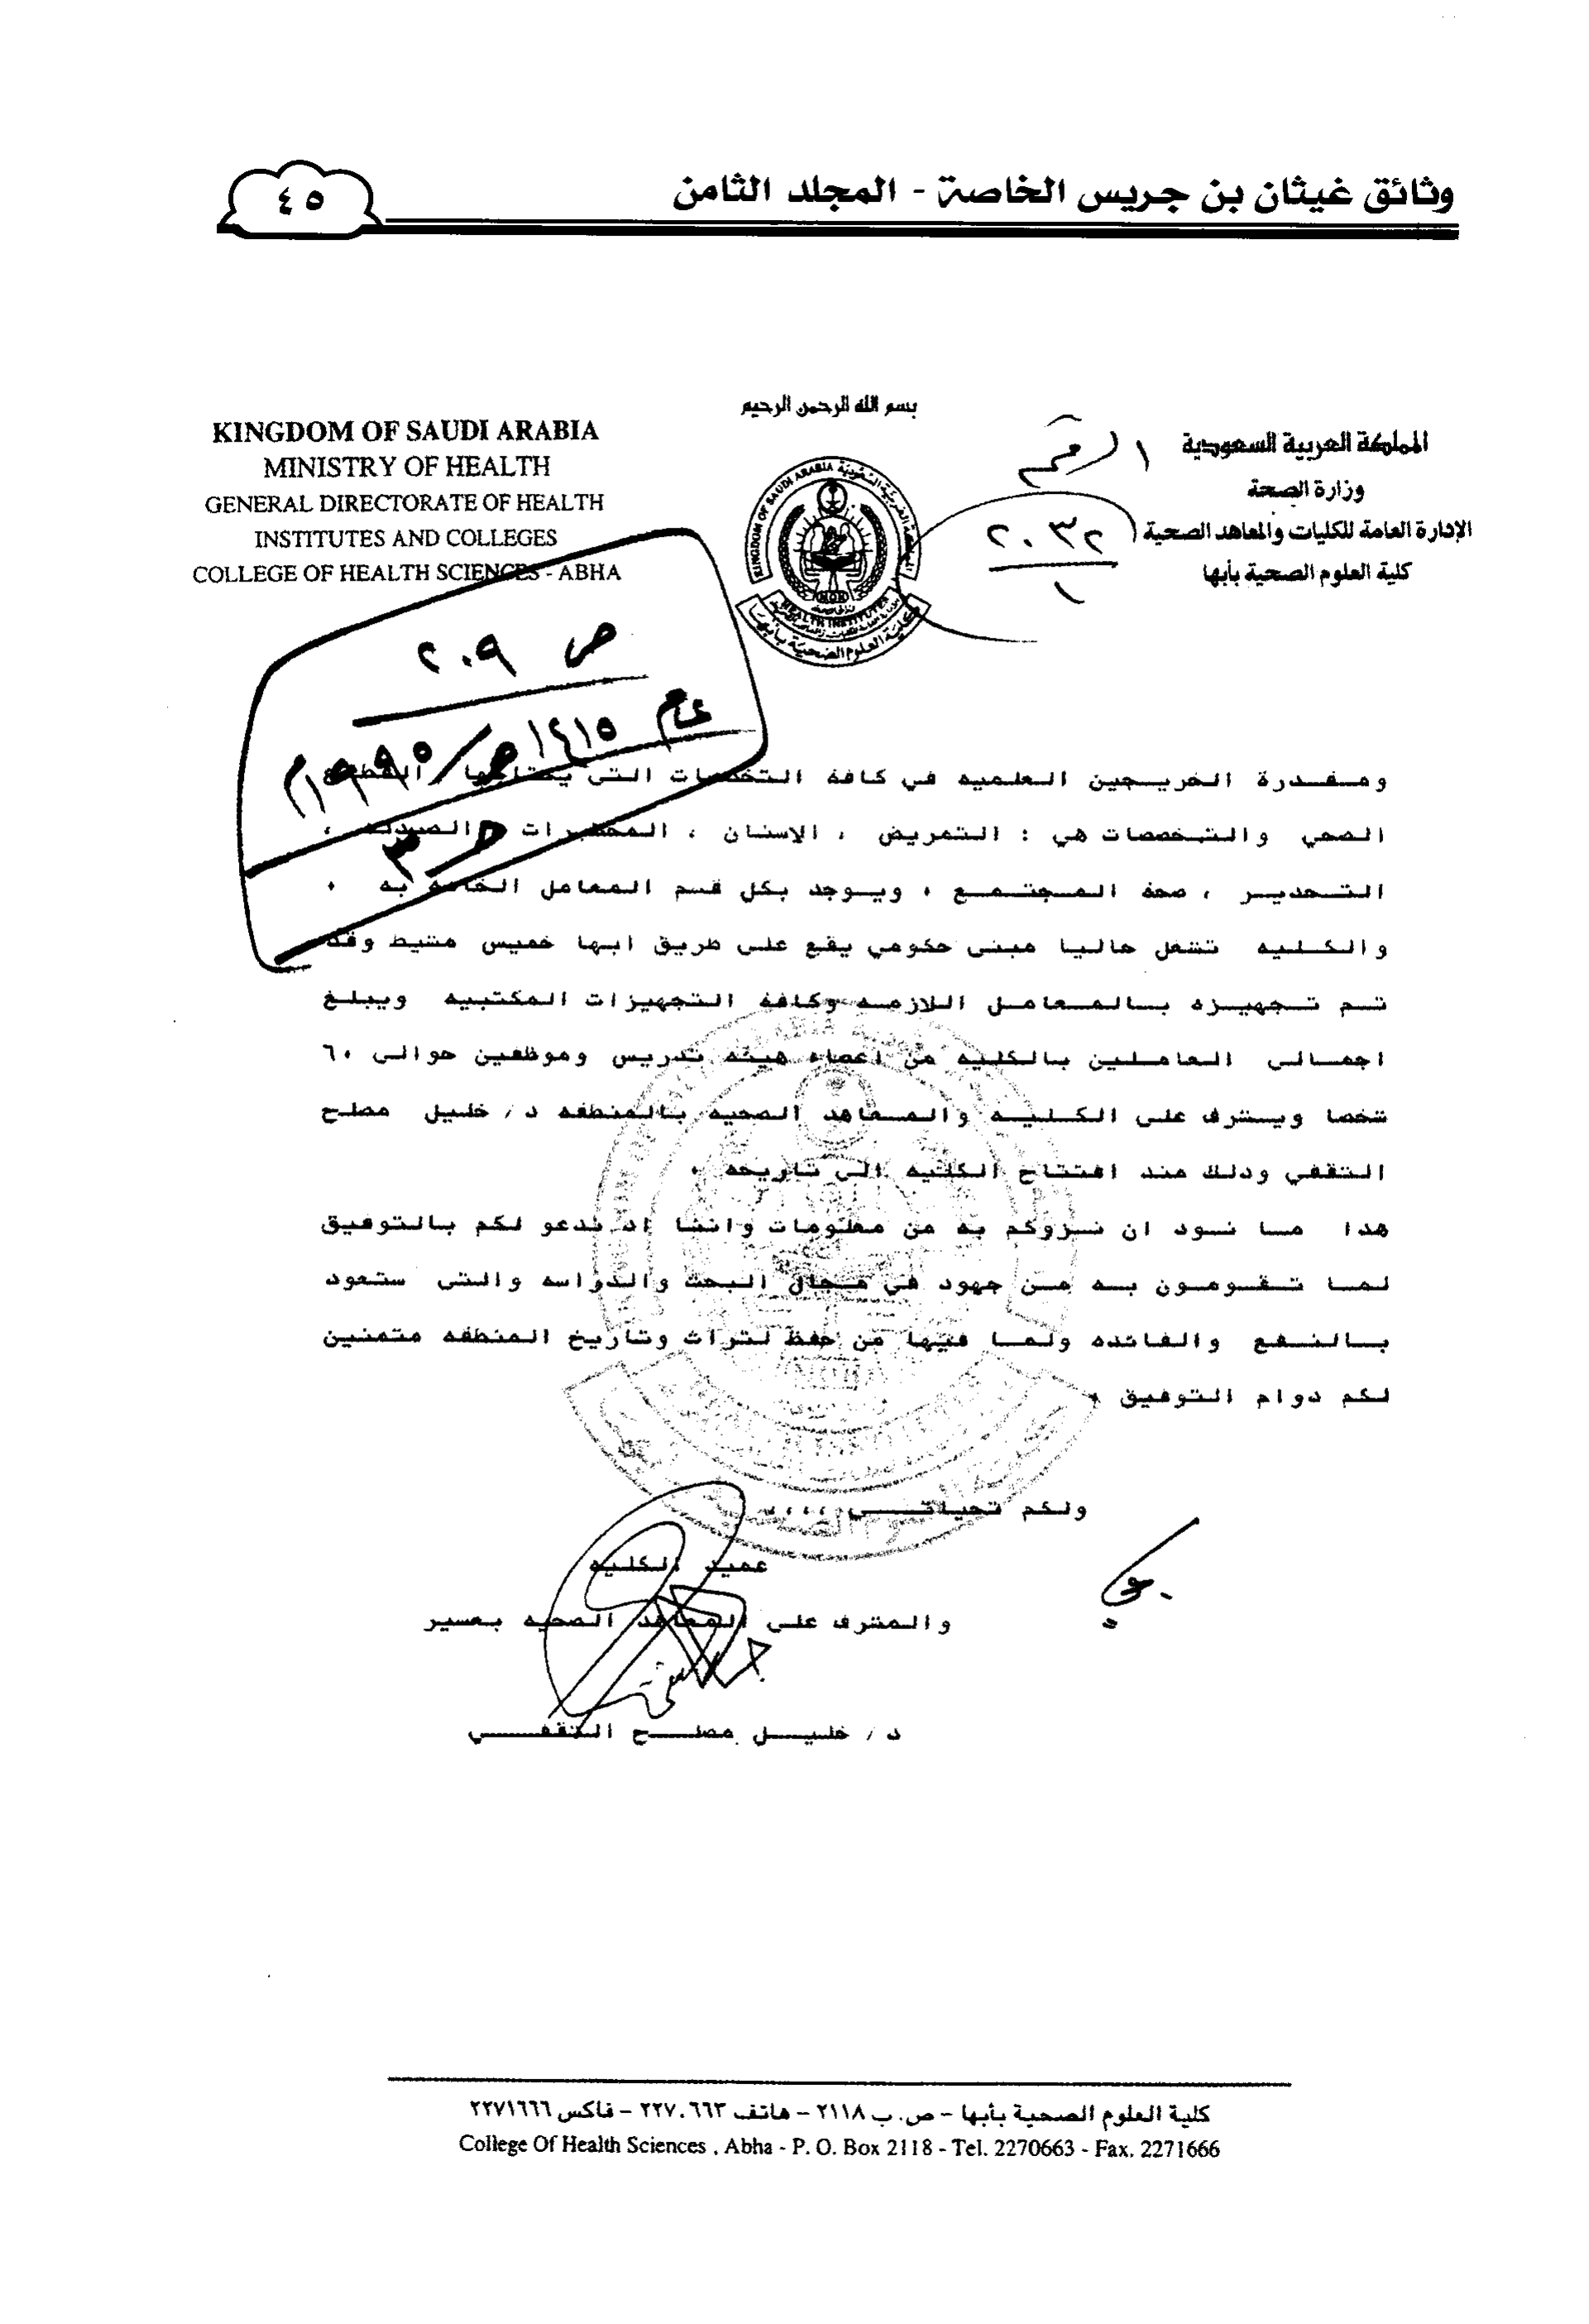 وثائق غيثان بن جريس الخاصة - المجلد الثامن
٤٥
بسم الله الرحمن الرحيم
KINGDOM OF SAUDI ARABIA
MINISTRY OF HEALTH
GENERAL DIRECTORATE OF HEALTH
INSTITUTES AND COLLEGES
COLLEGE OF HEALTH SCIENCES - ABHA
المملكة العربية السعودية
وزارة الصحة
الإدارة العامة للكليات والمعاهد الصحية
كلية العلوم الصحية بأبها
الرقم
٢٠٣٢
١
KINGDOM OF SAUDI ARABIA
MOH
HEALTH INSTITUTES
كلية العلوم الصحية بأبها
ص ٢٠٩
عام ١٤١٥ھ/١٩٩٥م
ح ٣
ومقدرة الخريجين العلميه في كافة التخصصات التى يحتاجها القطاع
الصحي والتخصصات هي : التمريض ، الاسنان ، المختبرات ، الصيدله ،
التخدير ، صحة المجتمع ، ويوجد بكل قسم المعامل الخاصه به .
والكليه تشغل حاليا مبنى حكومي يقع على طريق ابها خميس مشيط وقد
تم تجهيزه بالمعامل اللازمه وكافة التجهيزات المكتبيه ويبلغ
اجمالى العاملين بالكليه من اعضاء هيئة تدريس وموظفين حوالى ٦٠
شخصا ويشرف على الكليه والمعاهد الصحيه بالمنطقه د/ خليل مصلح
الثقفي وذلك منذ افتتاح الكليه الى تاريخه .
هذا ما نود ان نزوكم به من معلومات واننا اذ ندعو لكم بالتوفيق
لما تقومون به من جهود في مجال البحث والدراسه والتى ستعود
بالنفع والفائده ولما فيها من حفظ لتراث وتاريخ المنطقه متمنين
لكم دوام التوفيق .
ولكم تحياتي ،،،
عميد الكليه
والمشرف على المعاهد الصحيه بعسير
د / خليل مصلح الثقفي
كلية العلوم الصحية بأبها - ص. ب ٢١١٨ - هاتف ٢٢٧٠٦٦٣ - فاكس ٢٢٧١٦٦٦
College Of Health Sciences , Abha - P. O. Box 2118 - Tel. 2270663 - Fax. 2271666